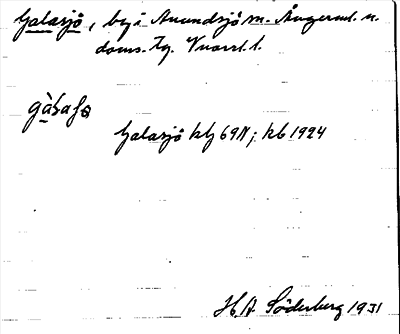 Galasjö, by i Anundsjö sn. Ångerml. n.
doms. Tg. Vnorrl. l.
Galasjö klj 69N; kb 1924
H. A. Söderberg 1931